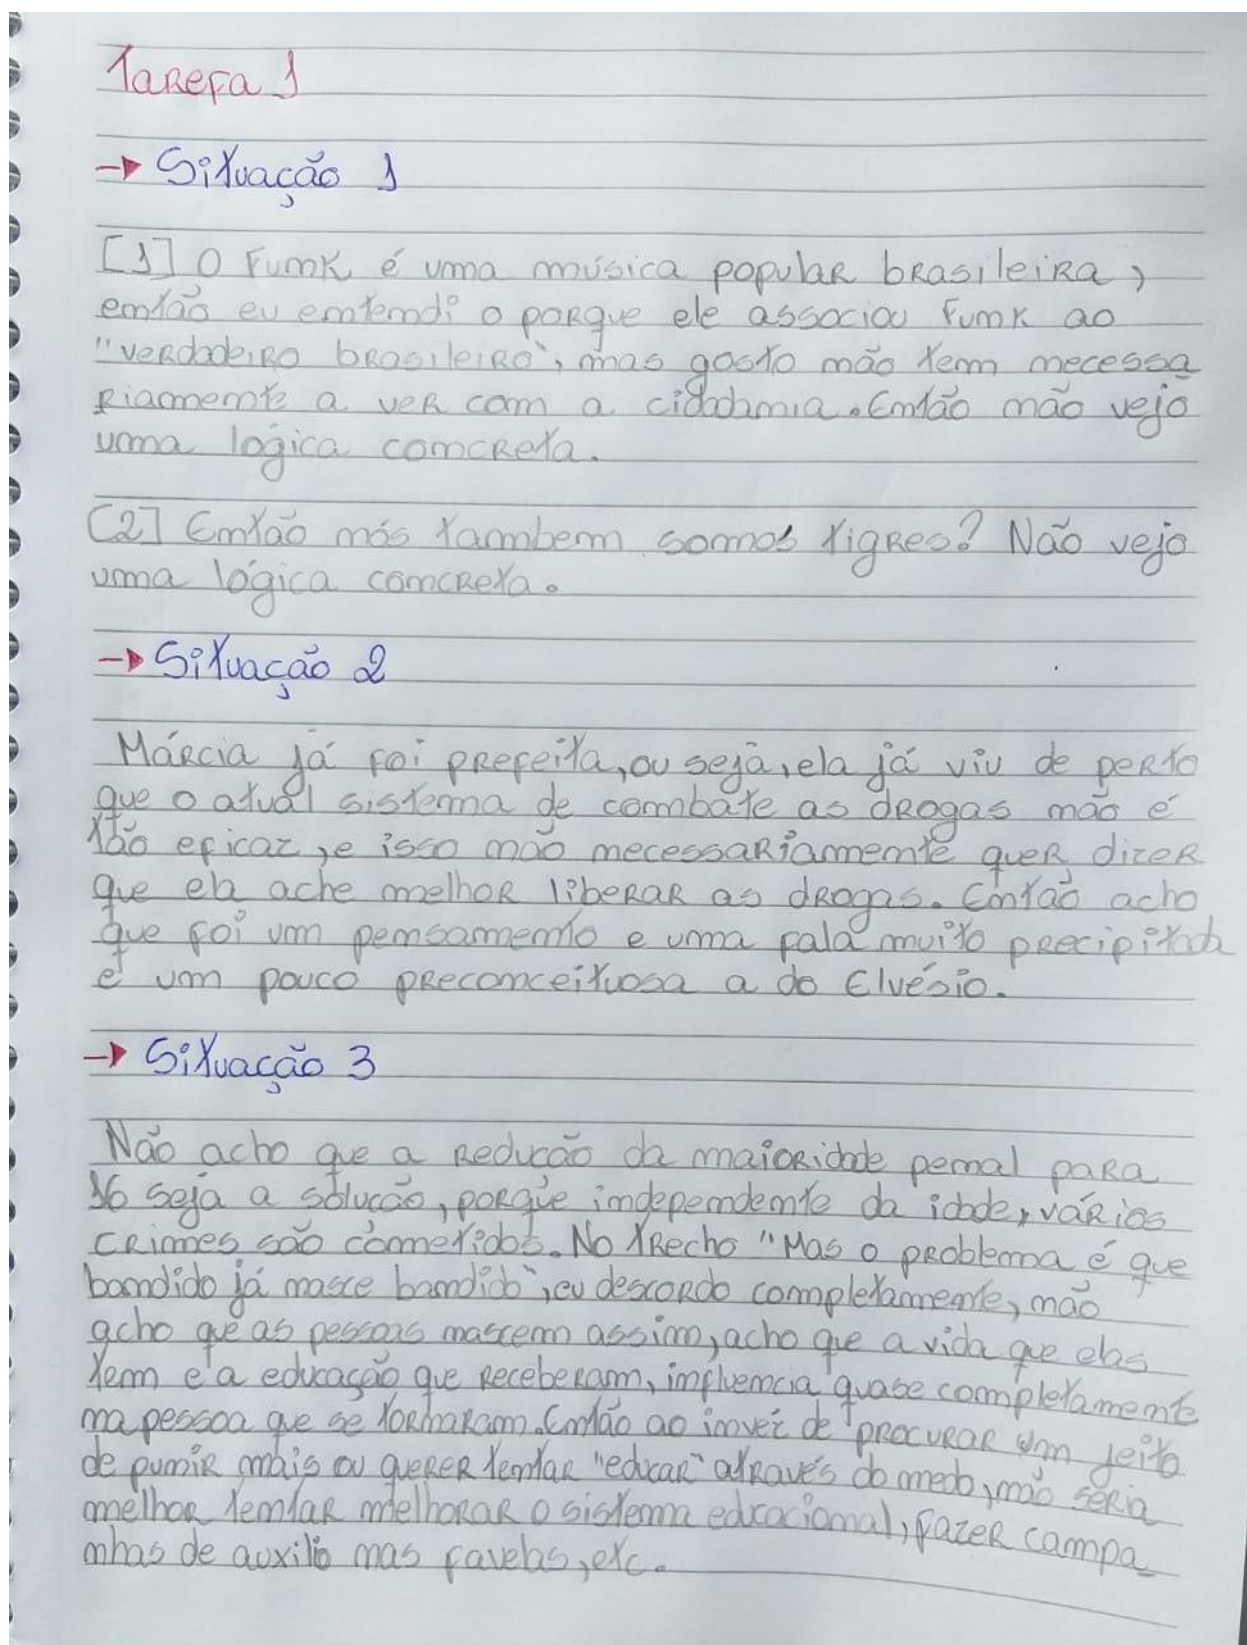 Tarefa 1
→ Situação 1
[1] O Funk é uma música popular brasileira,
então eu entendi o porque ele associou Funk ao
"verdadeiro brasileiro", mas gosto não tem necessa
riamente a ver com a cidadania. Então não vejo
uma lógica concreta.
[2] Então nós tambem somos tigres? Não vejo
uma lógica concreta.
→ Situação 2
Márcia já foi prefeita, ou seja, ela já viu de perto
que o atual sistema de combate as drogas não é
tão eficaz, e isso não necessariamente quer dizer
que ela ache melhor liberar as drogas. Então acho
que foi um pensamento e uma fala muito precipitada
e um pouco preconceituosa a do Elvésio.
→ Situação 3
Não acho que a redução da maioridade penal para
16 seja a solução, porque independente da idade, vários
crimes são cometidos. No trecho "Mas o problema é que
bandido já nasce bandido", eu descordo completamente, não
acho que as pessoas nascem assim, acho que a vida que elas
tem e a educação que receberam, influencia quase completamente
na pessoa que se tornaram. Então ao invéz de procurar um jeito
de punir mais ou querer tentar "educar" através do medo, não seria
melhor tentar melhorar o sistema educacional, fazer campa
nhas de auxilio nas favelas, etc.